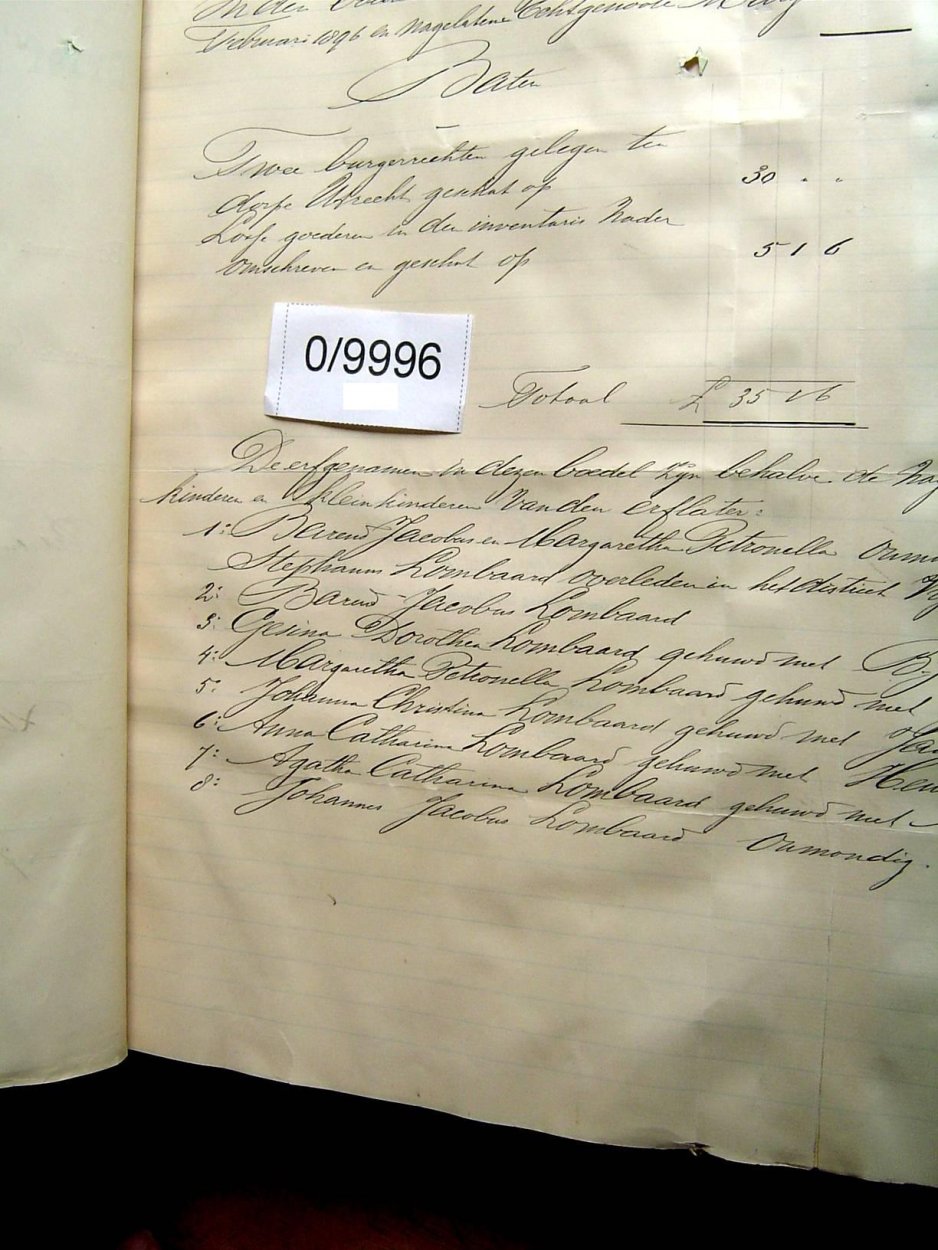 In den
Februari 1896 en nagelatene Echtgenoote
Baten
Twee burgerrechten gelegen ten
dorpe Utrecht geschat op 30 " "
Losse goederen in den inventaris nader
omschreven en geschat op 5 1 6
0/9996
Totaal £ 35 1 6
De erfgenamen in dezen boedel zijn behalve de
kinderen en kleinkinderen van den erflater:
1: Barend Jacobus en Margaretha Petronella
Stephanus Lombaard overleden in het district
2: Barend Jacobus Lombaard
3: Gesina Dorothea Lombaard gehuwd met
4: Margaretha Petronella Lombaard gehuwd met
5: Johanna Christina Lombaard gehuwd met
6: Anna Catharina Lombaard gehuwd met
7: Agatha Catharina Lombaard gehuwd met
8: Johannes Jacobus Lombaard Onmondig.